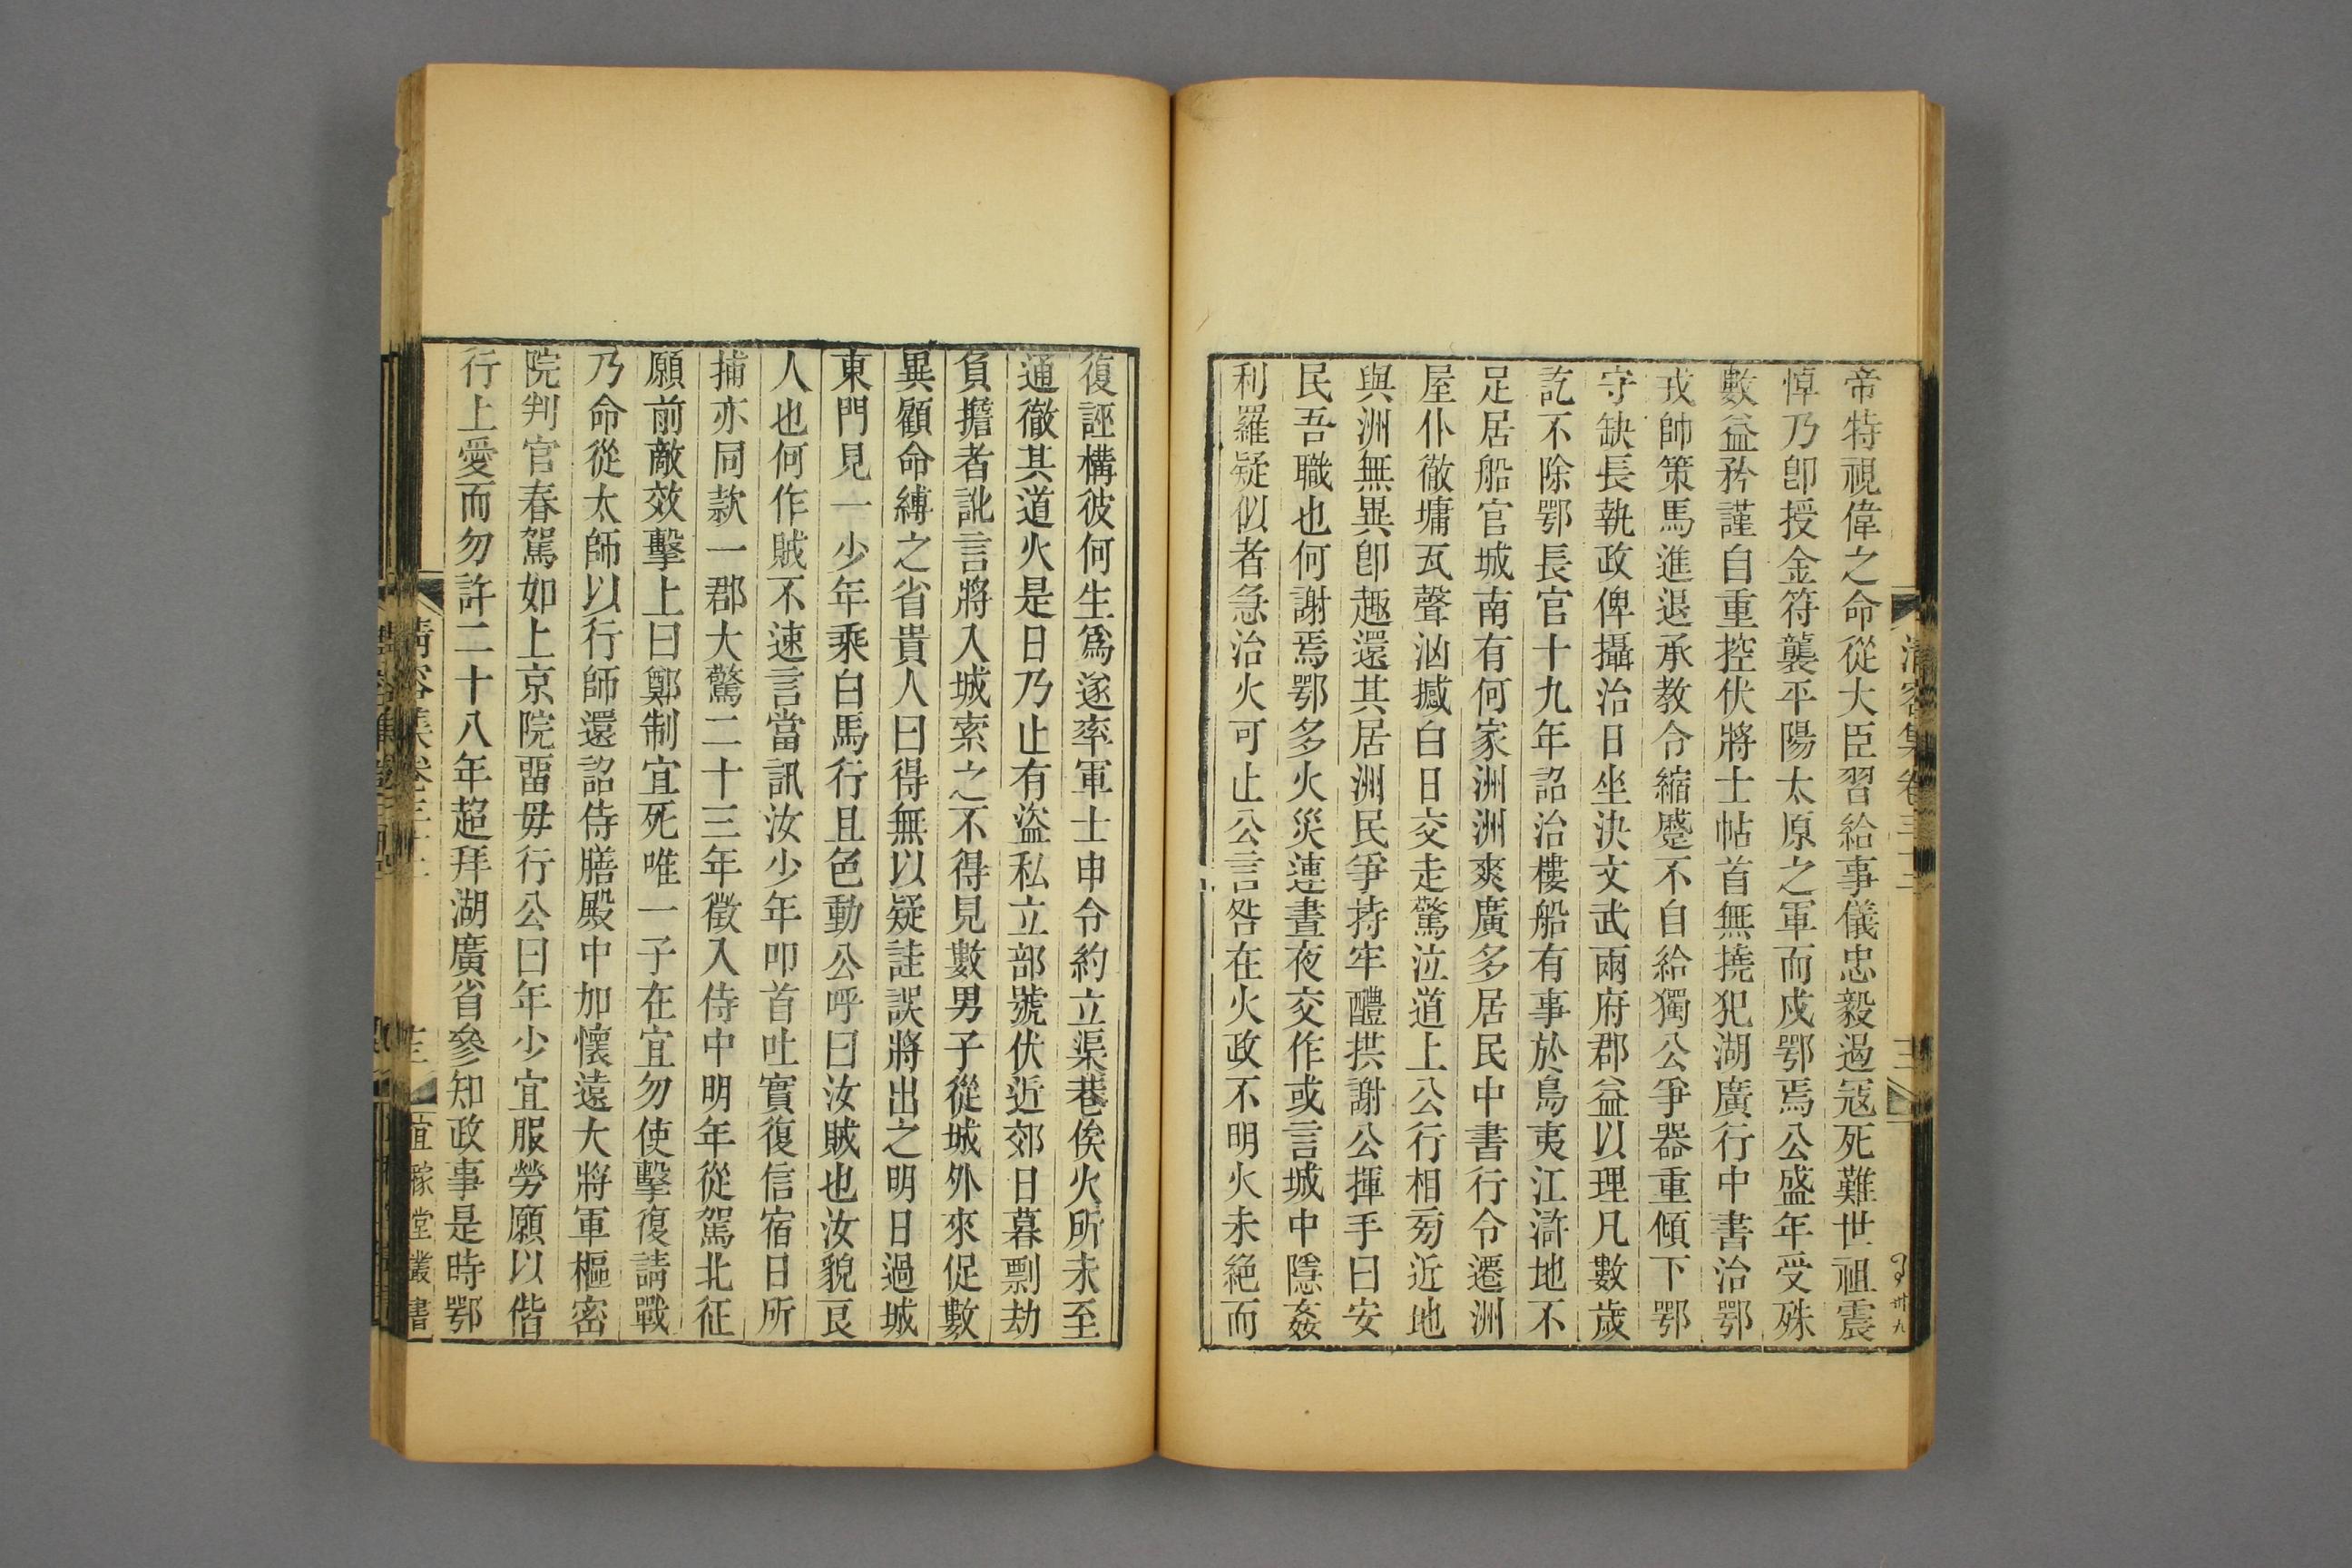 帝特視偉之命從大臣習給事儀忠毅過寇死難世祖震
悼乃卽授金符襲平陽太原之軍而戍鄂焉公盛年受殊
數益矜謹自重控伏將士帖首無撓犯湖廣行中書治鄂
戎帥策馬進退承教令縮蹙不自給獨公爭器重傾下鄂
守缺長執政俾攝治日坐決文武兩府郡益以理凡數歲
訖不除鄂長官十九年詔治樓船有事於島夷江滸地不
足居船官城南有何家洲洲爽廣多居民中書行令遷洲
屋仆徹墉瓦聲洶撼白日交走驚泣道上公行相旁近地
與洲無異卽趣還其居洲民爭持牢醴拱謝公揮手曰安
民吾職也何謝焉鄂多火災連晝夜交作或言城中隱姦
利羅疑似者急治火可止公言咎在火政不明火未絕而
復誣構彼何生爲遂率軍士申令約立渠巷俟火所未至
通徹其道火是日乃止有盜私立部號伏近郊日暮剽劫
負擔者訛言將入城索之不得見數男子從城外來促數
異顧命縛之省貴人曰得無以疑詿誤將出之明日過城
東門見一少年乘白馬行且色動公呼曰汝賊也汝貌良
人也何作賊不速言當訊汝少年叩首吐實復信宿日所
捕亦同款一郡大驚二十三年徵入侍中明年從駕北征
願前敵效擊上曰鄭制宜死唯一子在宜勿使擊復請戰
乃命從太師以行師還詔侍膳殿中加懷遠大將軍樞密
院判官春駕如上京院畱毋行公曰年少宜服勞願以偕
行上愛而勿許二十八年超拜湖廣省參知政事是時鄂
清容集卷三十二
三
宜稼堂叢書